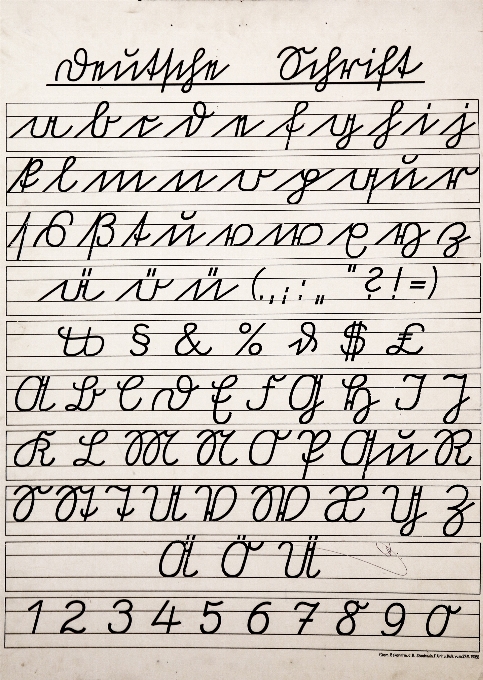 Deutsche Schrift
a b c d e f g h i j
k l m n o p qu r
ſ s ß t u v w x y z
ä ö ü (.,;: „ " ? ! =)
℔ § & % ₰ $ £
A B C D E F G H I J
K L M N O P Qu R
S St T U V W X Y Z
Ä Ö Ü
1 2 3 4 5 6 7 8 9 0